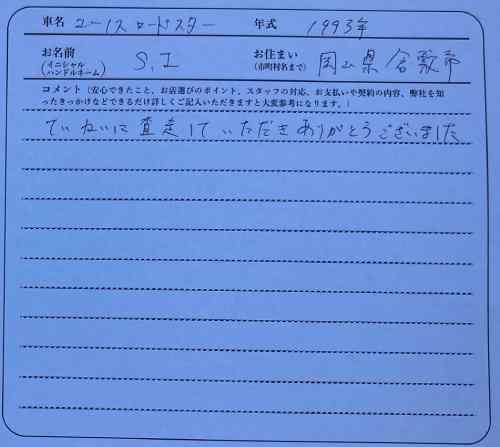 車名 ユーノス ロードスター 年式 1993年
お名前 (イニシャル ハンドルネーム) S.I お住まい (市町村名まで) 岡山県倉敷市
コメント (安心できたこと、お店選びのポイント、スタッフの対応、お支払いや契約の内容、弊社を知
ったきっかけなどできるだけ詳しくご記入いただきますと大変参考になります。)
ていねいに査定していただきありがとうございました